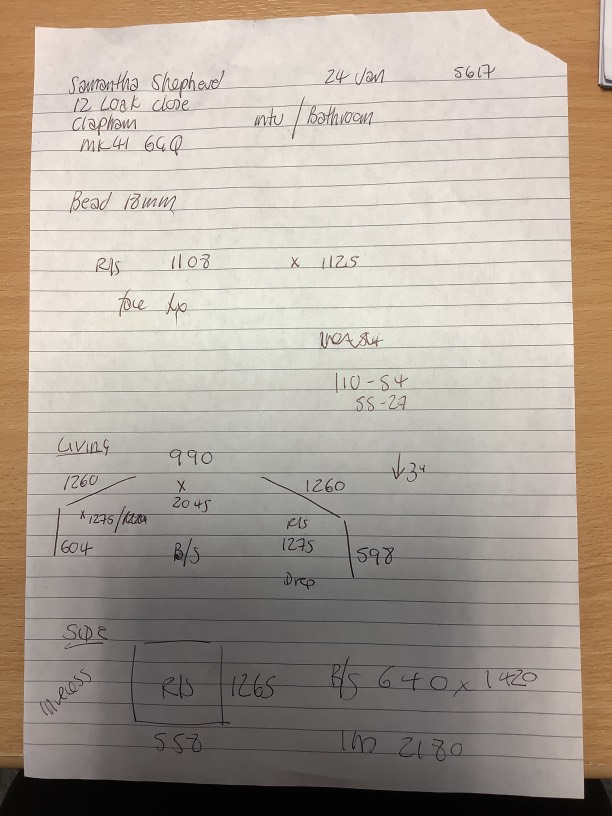 Samantha Shepherd 24 Jan 5617
12 Loak close
Clapham mtu / Bathroom
MK41 6GQ
Bead 18mm
R/S 1108 x 1125
face
110-54
55-27
Living
990
1260 x 1260 ↓3"
2045
x 1275/ R/S
604 B/S 1275 598
Drop
SIDE
In recess R/S 1265 B/S 640 x 1420
558 2180